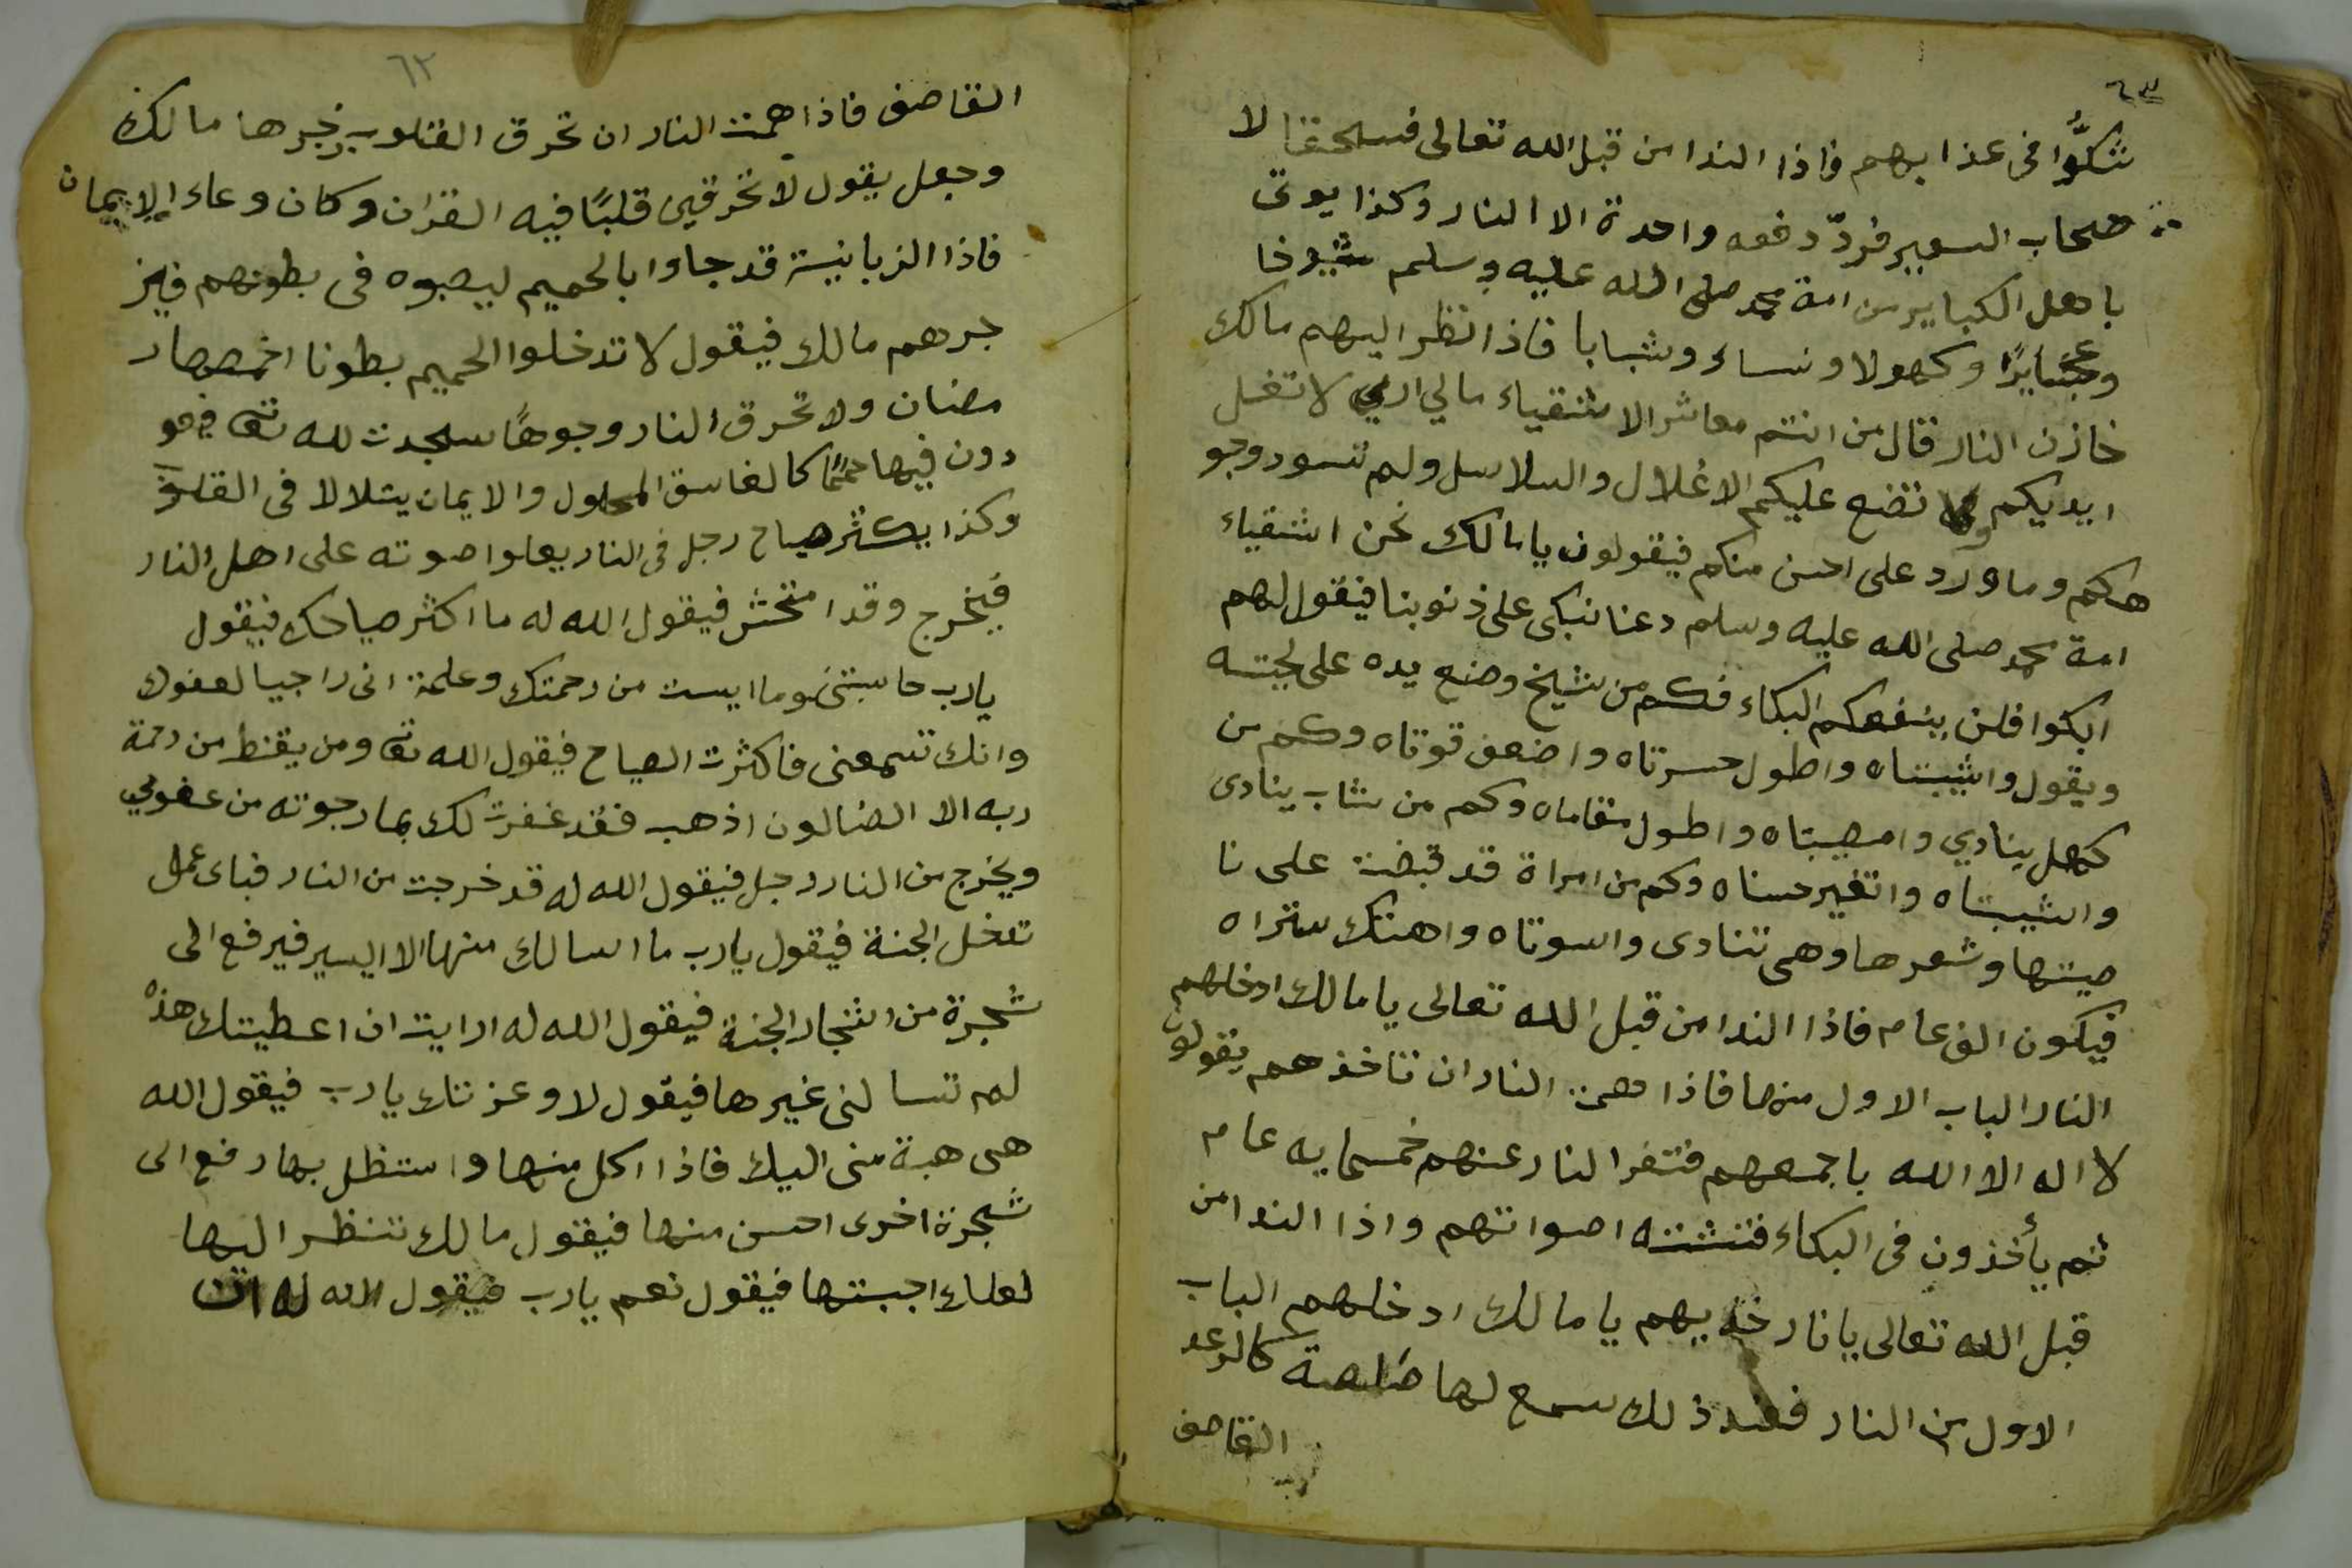 ٦٣
شكوا فى عذابهم فاذا الندا من قبل الله تعالى فسحقا لا
صحاب السعير فردّ دفعه واحدة الا النار وكذا يوتى
باهل الكباير من امة محمد صلى الله عليه وسلم شيوخا
وعجايزا وكهولا ونساء وشبابا فاذا نظر اليهم مالك
خازن النار قال من انتم معاشر الاشقياء مالي ارى لا تغل
ايديكم ولا تضع عليكم الاغلال والسلاسل ولم تسود وجو
هكم وما ورد على احسن منكم فيقولون يا مالك نحن اشقياء
امة محمد صلى الله عليه وسلم دعنا نبكى على ذنوبنا فيقول لهم
ابكوا فلن ينفعكم البكاء فكم من شيخ وضع يده على لحيته
ويقول واشيبتاه واطول حسرتاه واضعف قوتاه وكم من
كهل ينادي وامصيبتاه واطول مقاماه وكم من شاب ينادى
واشيبتاه واتغير حسناه وكم من امراة قد قبضت على نا
صيتها وشعرها وهى تنادى واسوتاه واهتك ستراه
فيكون الف عام فاذا الندا من قبل الله تعالى يا مالك ادخلهم
النار الباب الاول منها فاذا همت النار ان تاخذهم يقولون
لا اله الا الله باجمعهم فتفر النار عنهم خمسمايه عام
ثم يأخذون فى البكاء فتشتد اصواتهم واذا الندا من
قبل الله تعالى يا نار خذيهم يا مالك ادخلهم الباب
الاول من النار فعند ذلك سمع لها كالرعد
القاصف
٦٢
القاصف فاذا همت النار ان تحرق القلوب زجرها مالك
وجعل يقول لا تحرقين قلبًا فيه القران وكان وعاء الايمان
فاذا الزبانية قد جاوا بالحميم ليصبوه فى بطونهم فيز
جرهم مالك فيقول لا تدخلوا الحميم بطونا اخمصها ر
مضان ولا تحرق النار وجوهًا سجدت لله تعا فيعو
دون فيها حممًا كالغاسق المحلول والايمان يتلالا فى القلوب
وكذا يكثر صياح رجل فى النار يعلوا صوته على اهل النار
فيخرج وقد امتحش فيقول الله له ما اكثر صياحك فيقول
يا رب حاسبتنى وما ايست من رحمتك وعلمة انى راجيا لعفوك
وانك تسمعنى فاكثرت الصياح فيقول الله تعا ومن يقنط من رحمة
ربه الا الضالون اذهب فقد غفرت لك بما رجوته من عفوي
ويخرج من النار رجل فيقول الله له قد خرجت من النار فباى عمل
تدخل الجنة فيقول يا رب ما اسالك منها الا اليسير فيرفع الى
شجرة من اشجار الجنة فيقول الله له ارايت ان اعطيتك هذه
لم تسالنى غيرها فيقول لا وعزتك يا رب فيقول الله
هى هبة منى اليك فاذا اكل منها واستظل بها رفع الى
شجرة اخرى احسن منها فيقول مالك تنظر اليها
لعلك اجبتها فيقول نعم يا رب فيقول الله له ان